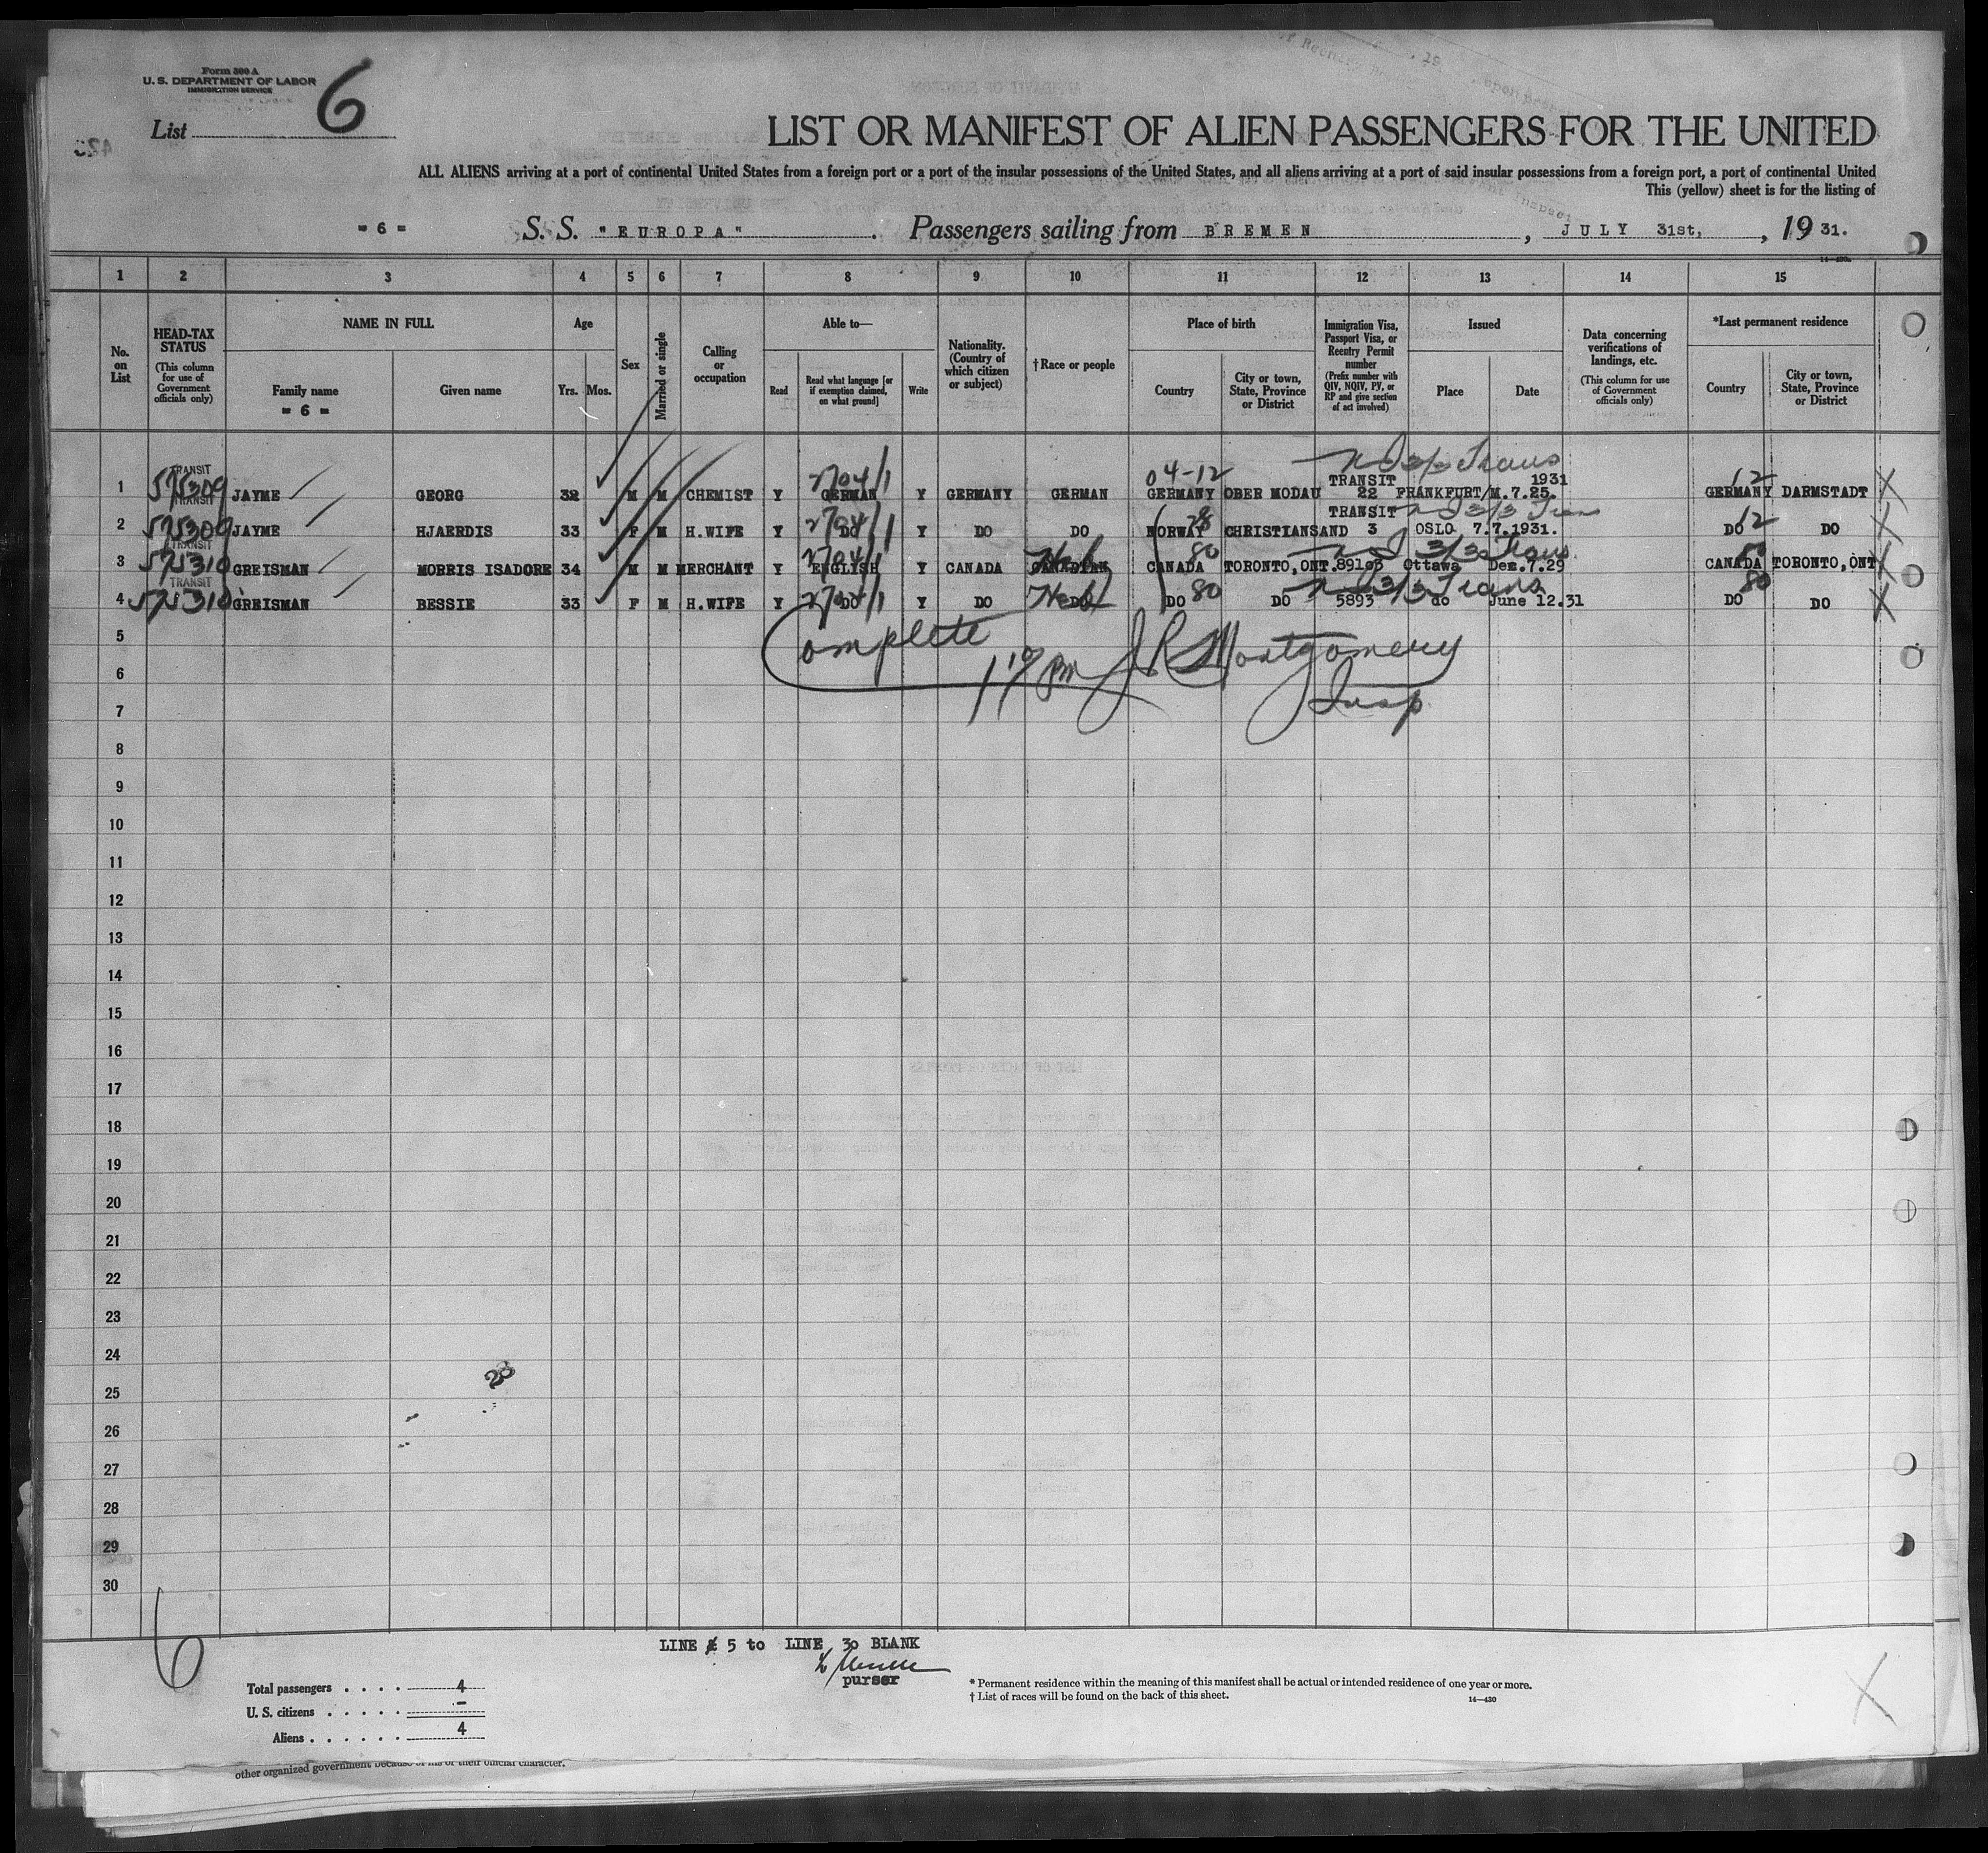 Form 500 A
U. S. DEPARTMENT OF LABOR
IMMIGRATION SERVICE
List 6
LIST OR MANIFEST OF ALIEN PASSENGERS FOR THE UNITED
ALL ALIENS arriving at a port of continental United States from a foreign port or a port of the insular possessions of the United States, and all aliens arriving at a port of said insular possessions from a foreign port, a port of continental United
This (yellow) sheet is for the listing of
= 6 = S. S. "EUROPA". Passengers sailing from BREMEN, JULY 31st, , 19 31.
1 2 3 4 5 6 7 8 9 10 11 12 13 14 15
No. on List
HEAD-TAX STATUS (This column for use of Government officials only)
NAME IN FULL
Family name
= 6 =
Given name
Age
Yrs. Mos.
Sex
Married or single
Calling or occupation
Able to—
Read
Read what language [or if exemption claimed, on what ground]
Write
Nationality. (Country of which citizen or subject)
† Race or people
Place of birth
Country
City or town, State, Province or District
Immigration Visa, Passport Visa, or Reentry Permit number (Prefix number with QIV, NQIV, PV, or RP and give section of act involved)
Issued
Place
Date
Data concerning verifications of landings, etc. (This column for use of Government officials only)
*Last permanent residence
Country
City or town, State, Province or District
04-12
TRANSIT TRANSIT 1931
1 575309 JAYME GEORG 32 M M CHEMIST Y GERMAN Y GERMANY GERMAN GERMANY OBER MODAU 22 FRANKFURT/M.7.25. GERMANY DARMSTADT
TRANSIT TRANSIT
2 575309 JAYME HJAERDIS 33 F M H.WIFE Y DO Y DO DO NORWAY CHRISTIANSAND 3 OSLO 7.7.1931. DO DO
TRANSIT
3 575310 GREISMAN MORRIS ISADORE 34 M M MERCHANT Y ENGLISH Y CANADA CANADIAN Heb CANADA TORONTO, ONT. 89103 Ottawa Dez.7.29 CANADA TORONTO, ONT
TRANSIT
4 575310 GREISMAN BESSIE 33 F M H.WIFE Y DO Y DO DO Heb DO DO 5893 do June 12.31 DO DO
Complete
110 PM J R Montgomery
Insp
5
6
7
8
9
10
11
12
13
14
15
16
17
18
19
20
21
22
23
24
25
26
27
28
29
30
6
LINE 5 to LINE 30 BLANK
purser
Total passengers . . . . 4
U. S. citizens . . . . . -
Aliens . . . . . . 4
* Permanent residence within the meaning of this manifest shall be actual or intended residence of one year or more.
† List of races will be found on the back of this sheet.
14—430
other organized government because of his or their official character.